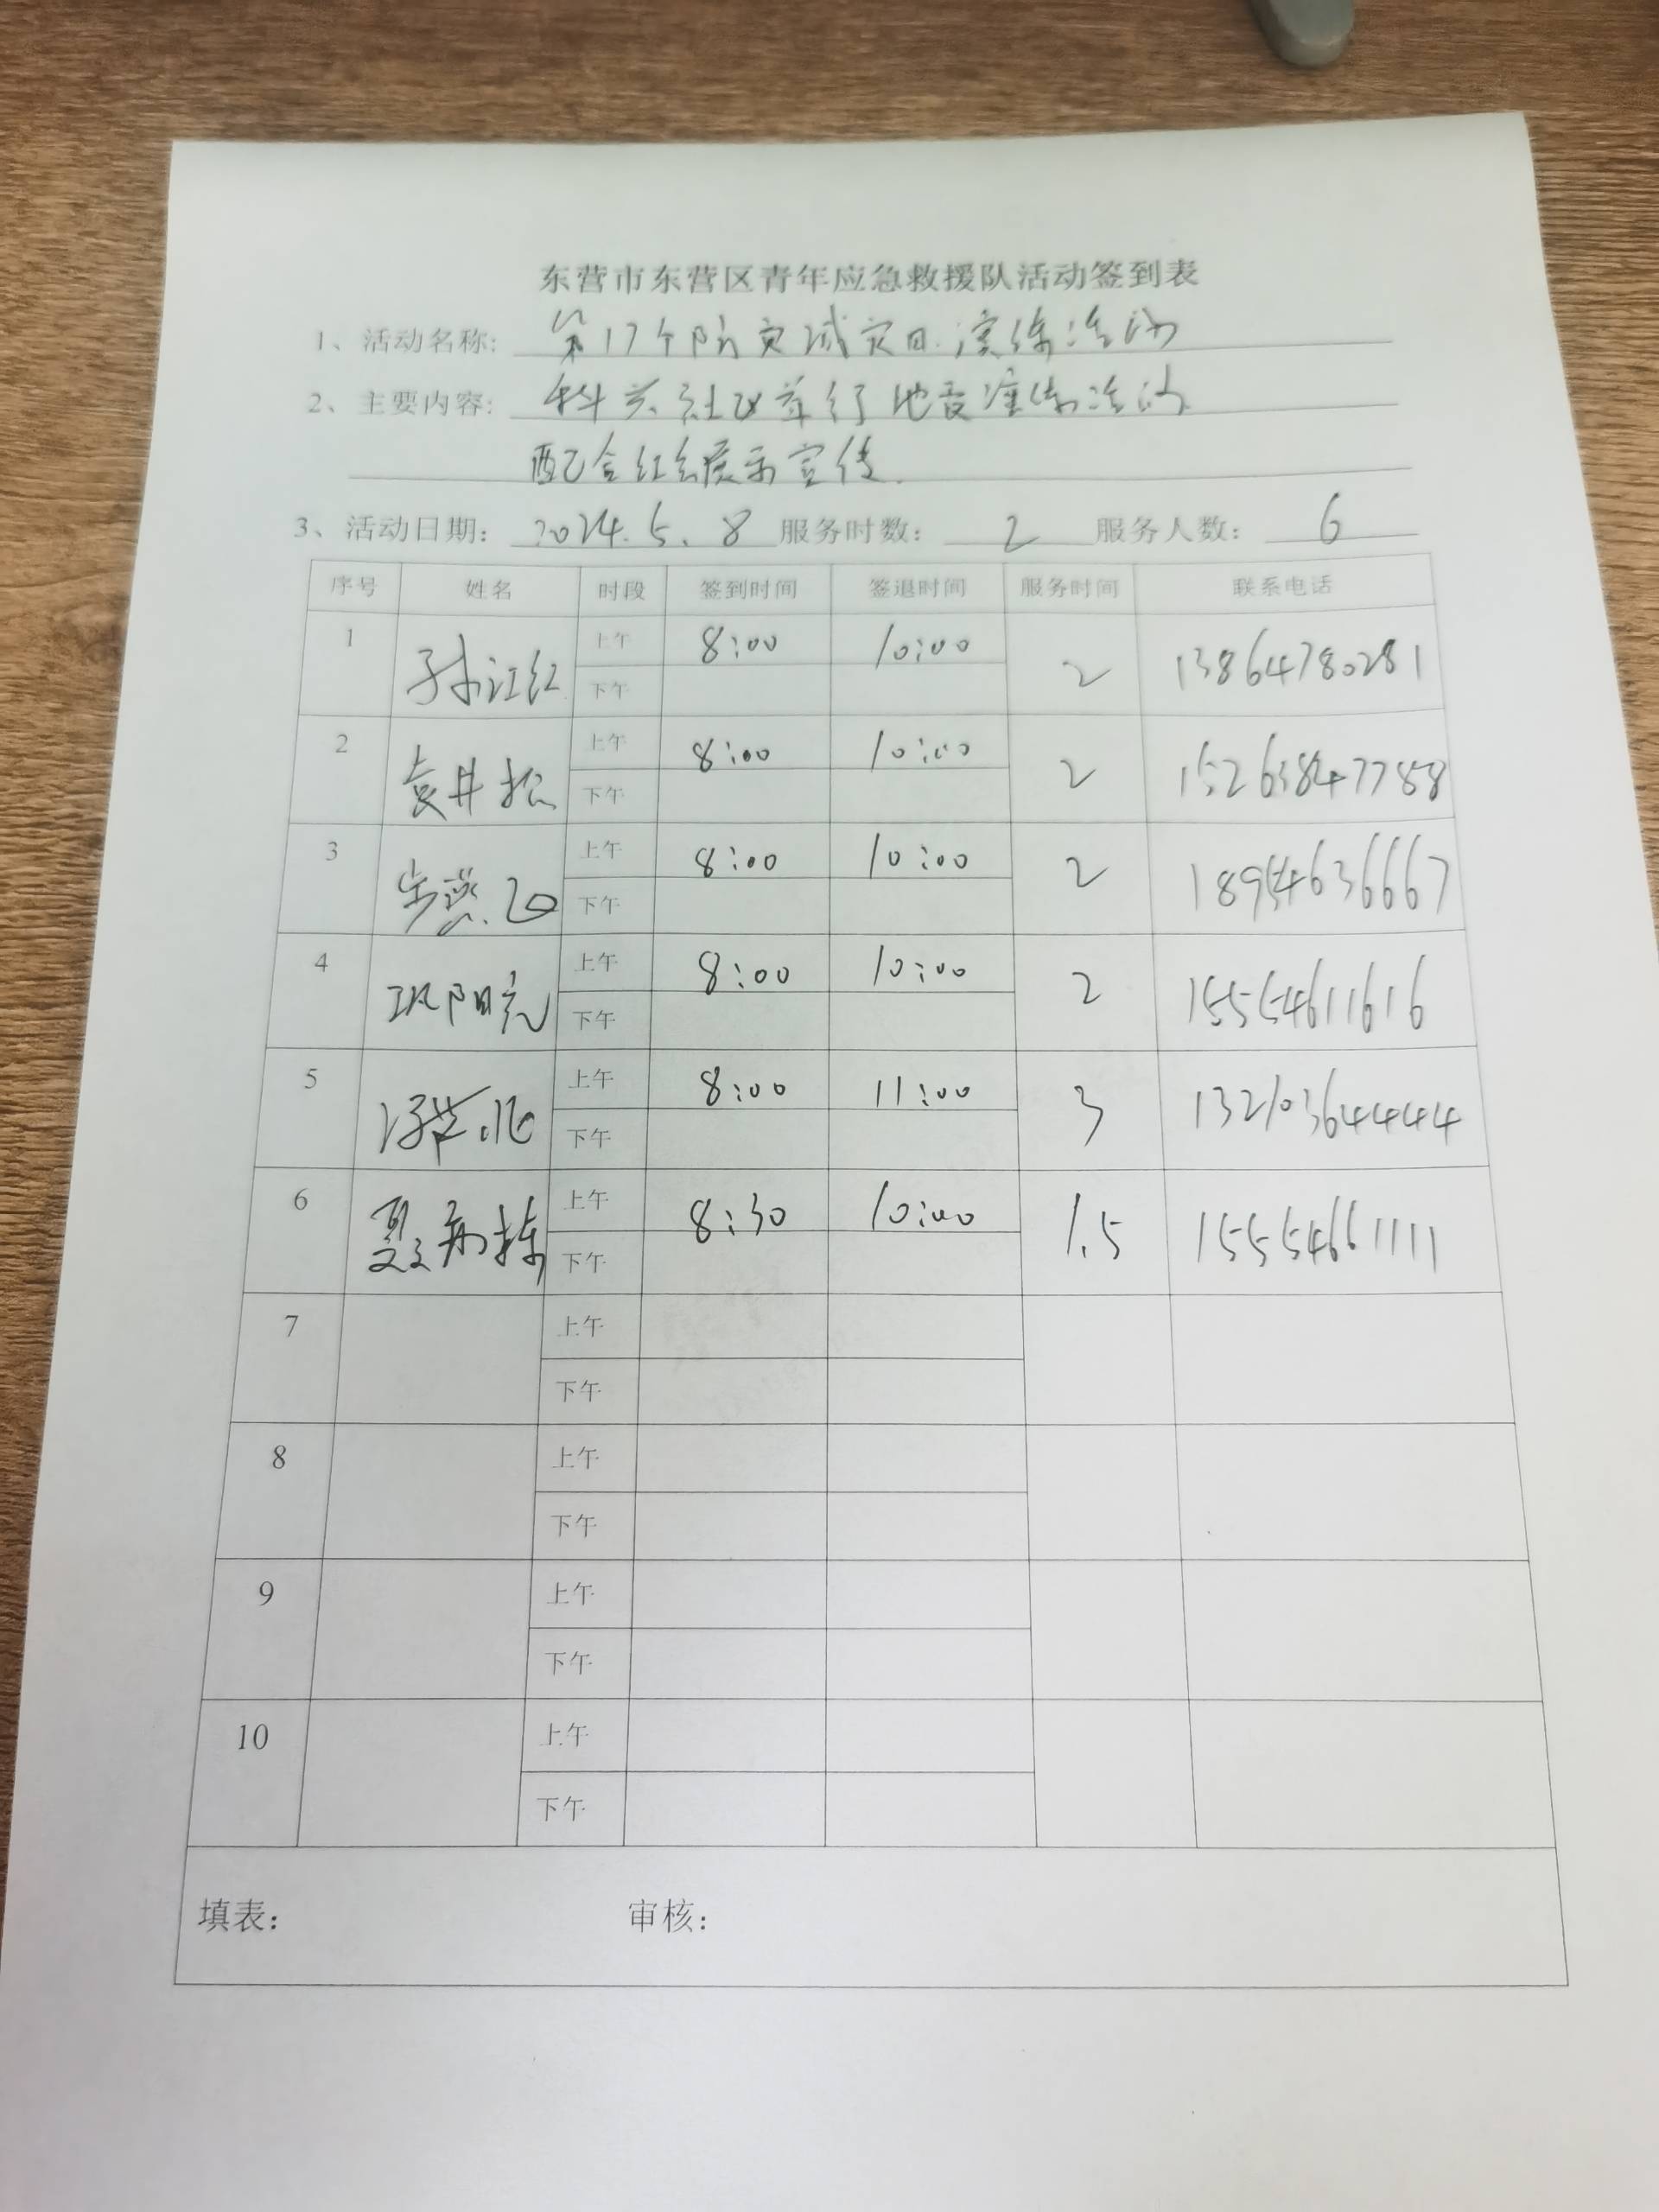 东营市东营区青年应急救援队活动签到表
1、活动名称: 第17个防灾减灾日演练活动
2、主要内容: 科兴社区举行地震演练活动
配合红会展示宣传.
3、活动日期: 2024.5.8 服务时数: 2 服务人数: 6
序号 姓名 时段 签到时间 签退时间 服务时间 联系电话
1 孙江红 上午 8:00 10:00 2 13864780281
下午
2 袁井松 上午 8:00 10:00 2 15263847788
下午
3 上午 8:00 10:00 2 18954636667
下午
4 巩阳亮 上午 8:00 10:00 2 15554611616
下午
5 上午 8:00 11:00 3 13210364444
下午
6 上午 8:30 10:00 1.5 15554661111
下午
7 上午
下午
8 上午
下午
9 上午
下午
10 上午
下午
填表: 审核: